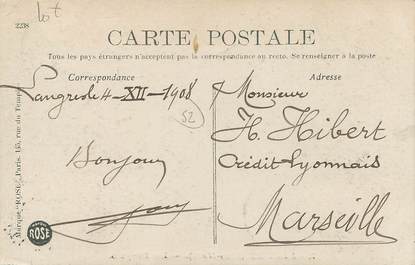 lot
2238
CARTE POSTALE
Tous les pays étrangers n'acceptent pas la correspondance au recto. Se renseigner à la poste
Correspondance
Adresse
Langres le 4 - XII - 1908
52
Bonjour
Monsieur
H. Hibert
Crédit Lyonnais
Marseille
Marque "ROSE" Paris. 155, rue du Temple
ROSE